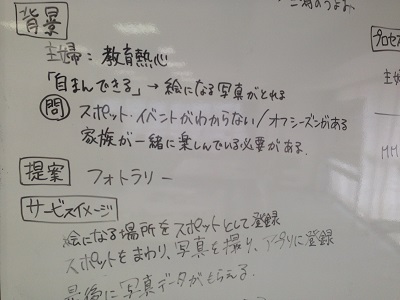 背景
主婦：教育熱心
「自まんできる」→絵になる写真がとれる
問 スポット・イベントがわからない/オフシーズンがある
家族が一緒に楽しんでいる必要がある.
提案 フォトラリー
サービスイメージ
絵になる場所をスポットとして登録
スポットをまわり、写真を撮り、アプリに登録
最後に写真データがもらえる.
プロセス
主婦